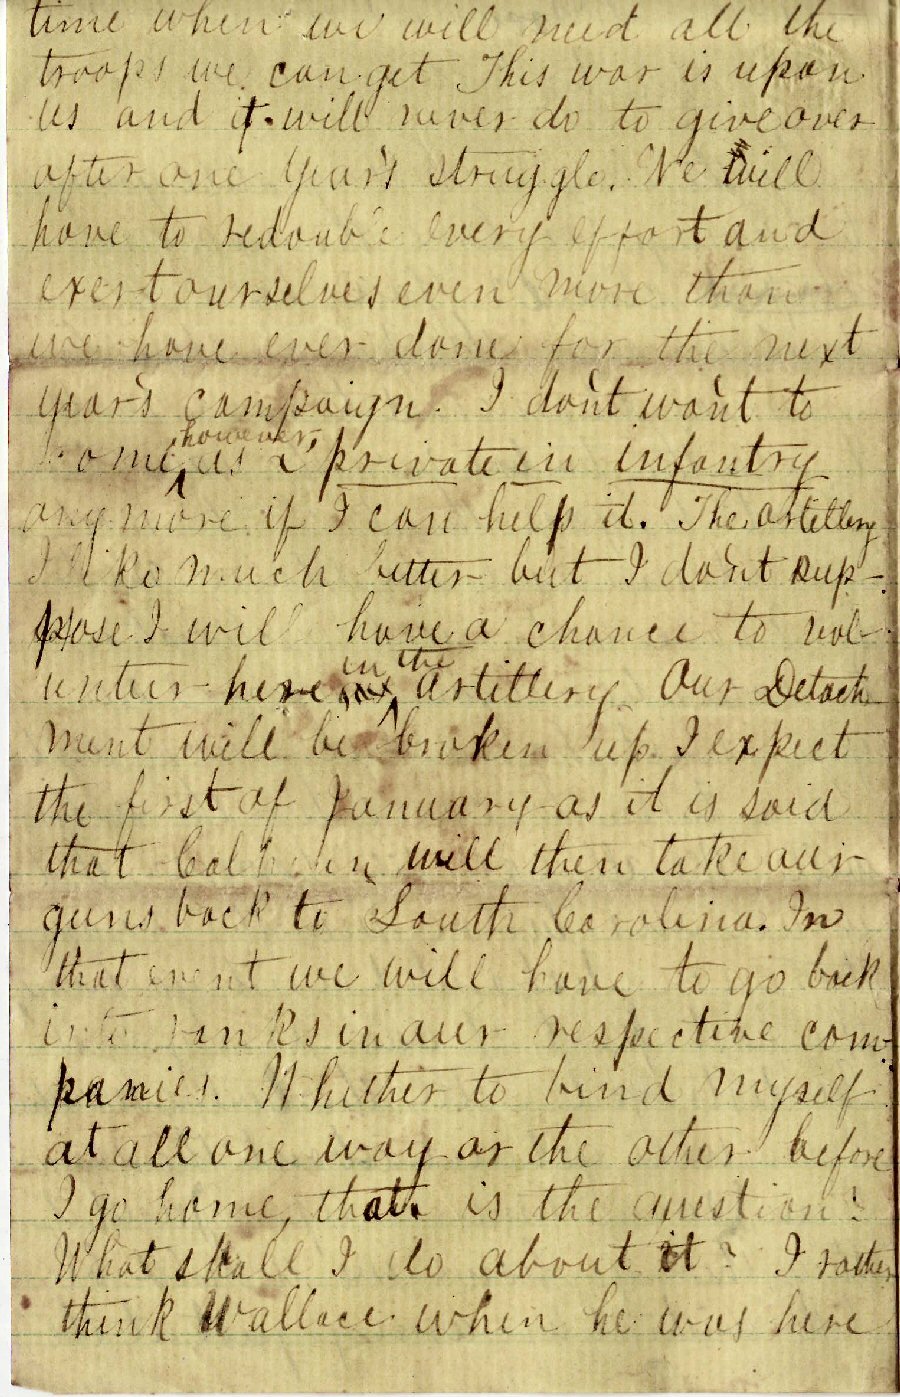 time when we will need all the
troops we can get This war is upon
us and it will never do to give over
after one year's struggle. We will
have to redouble every effort and
exert ourselves even more than
we have ever done for the next
year's campaign. I do'nt wa'nt to
come, however, as a private in infantry
any more if I can help it. The artillery
I like much better but I do'nt sup-
pose I will have a chance to vol-
unteer here in the artillery Our Detach-
ment will be broken up I expect
the first of January as it is said
that Calhoun will then take our
guns back to South Carolina. In
that event we will have to go back
into ranks in our respective com-
panies. Whether to bind myself
at all one way or the other before
I go home, that is the question?
What shall I do about it? I rather
think Wallace when he was here